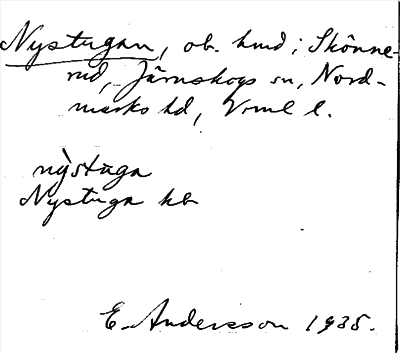 Nystugan, ob. hmd i Skönne-
rud, Järnskogs sn, Nord-
marks hd, Vrml l.
nỳstuga
Nystuga kb
E. Andersson 1935.